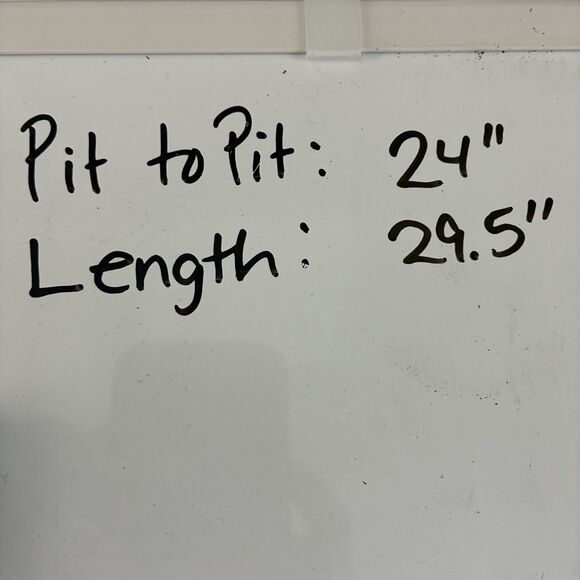 Pit to Pit: 24"
Length: 29.5"